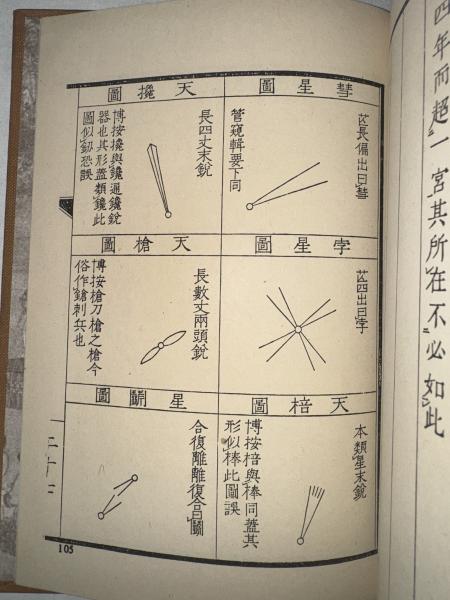 四年而超一宮其所在不必如此
彗星圖
芒長偏出曰彗
管窺輯要下同
天攙圖
長四丈末銳
博按攙與鑱通鑱銳
器也其形蓋類鑱此
圖似釰恐誤
孛星圖
芒四出曰孛
天槍圖
長數丈兩頭銳
博按槍刀槍之槍今
俗作鎗刺兵也
天棓圖
本類星末銳
博按棓與棒同蓋其
形似棒此圖誤
星鬭圖
合復離離復合曰鬭
105